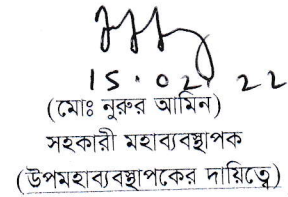 15.02.22
(মোঃ নুরুর আমিন)
সহকারী মহাব্যবস্থাপক
(উপমহাব্যবস্থাপকের দায়িত্বে)